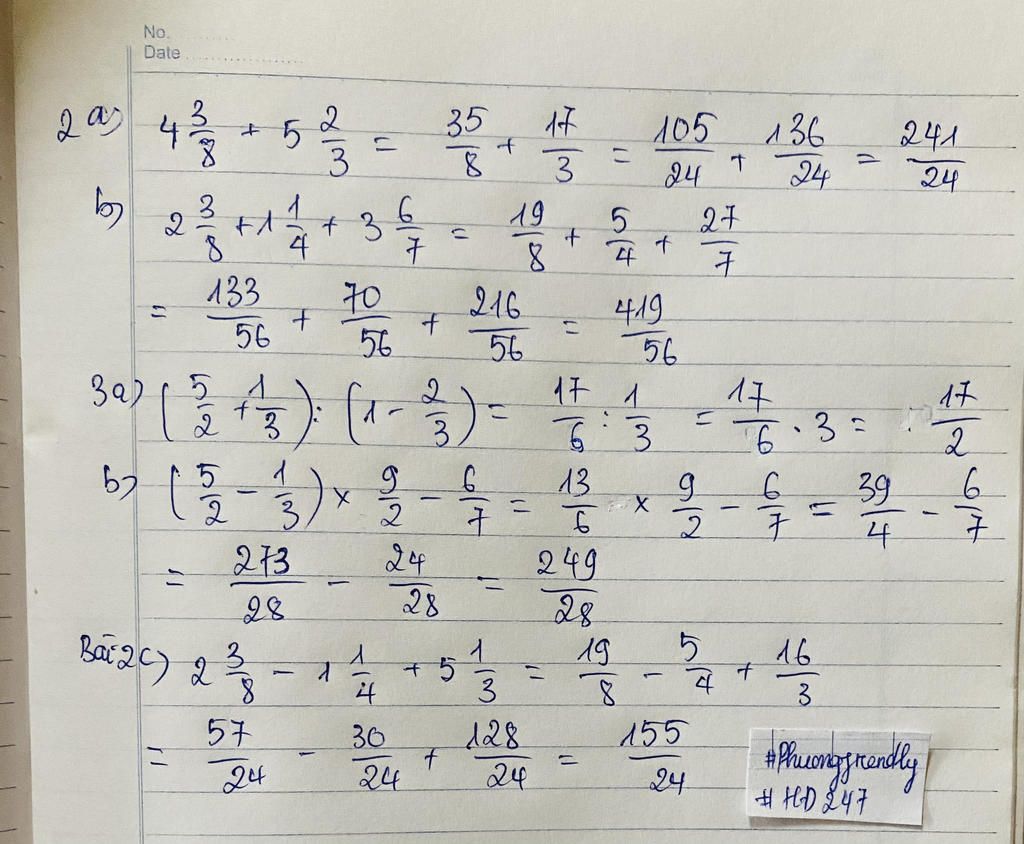 No. ..........
Date ....................
2 a) 4 3/8 + 5 2/3 = 35/8 + 17/3 = 105/24 + 136/24 = 241/24
b) 2 3/8 + 1 1/4 + 3 6/7 = 19/8 + 5/4 + 27/7
= 133/56 + 70/56 + 216/56 = 419/56
3a) (5/2 + 1/3) : (1 - 2/3) = 17/6 : 1/3 = 17/6 . 3 = 17/2
b) (5/2 - 1/3) x 9/2 - 6/7 = 13/6 x 9/2 - 6/7 = 39/4 - 6/7
= 273/28 - 24/28 = 249/28
Bài 2c) 2 3/8 - 1 1/4 + 5 1/3 = 19/8 - 5/4 + 16/3
= 57/24 - 30/24 + 128/24 = 155/24
#Phuongfriendly
# HD 247